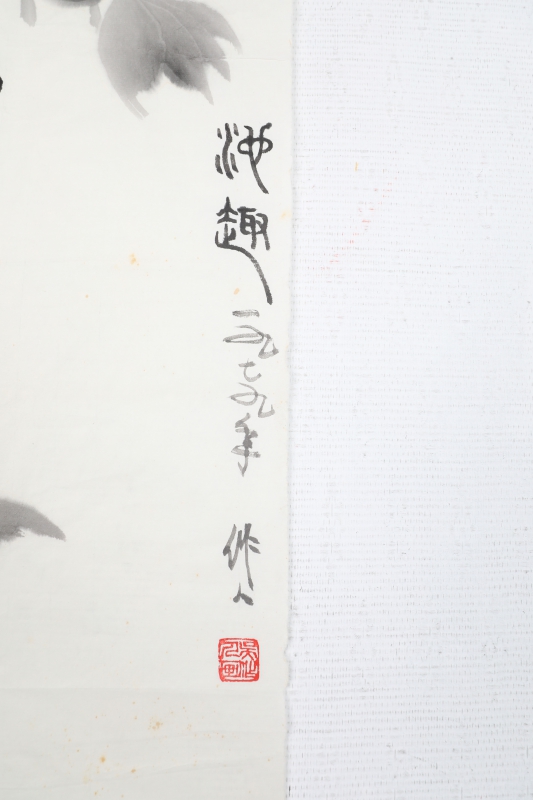 池趣
一九七九年
作人